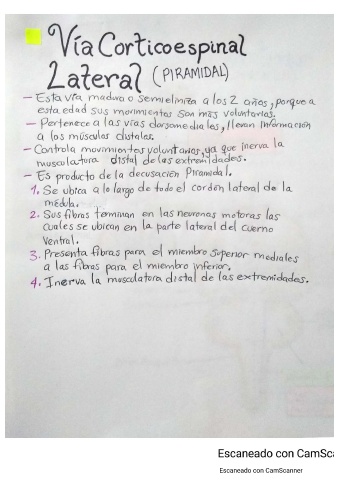 Vía Corticoespinal
Lateral (PIRAMIDAL)
- Esta vía madura o Semieliniza a los 2 años, porque a
esta edad sus movimientos son mas voluntarios.
- Pertenece a las vias dorsomediales, llevan Información
a los músculos distales.
- Controla movimientos voluntarios, ya que inerva la
musculatura distal de las extremidades.
- Es producto de la decusación Piramidal.
1. Se ubica a lo largo de todo el cordón lateral de la
médula.
2. Sus fibras terminan en las neuronas motoras las
cuales se ubican en la parte lateral del cuerno
Ventral.
3. Presenta fibras para el miembro Superior mediales
a las fibras para el miembro inferior.
4. Inerva la musculatura distal de las extremidades.
Escaneado con CamSc
Escaneado con CamScanner